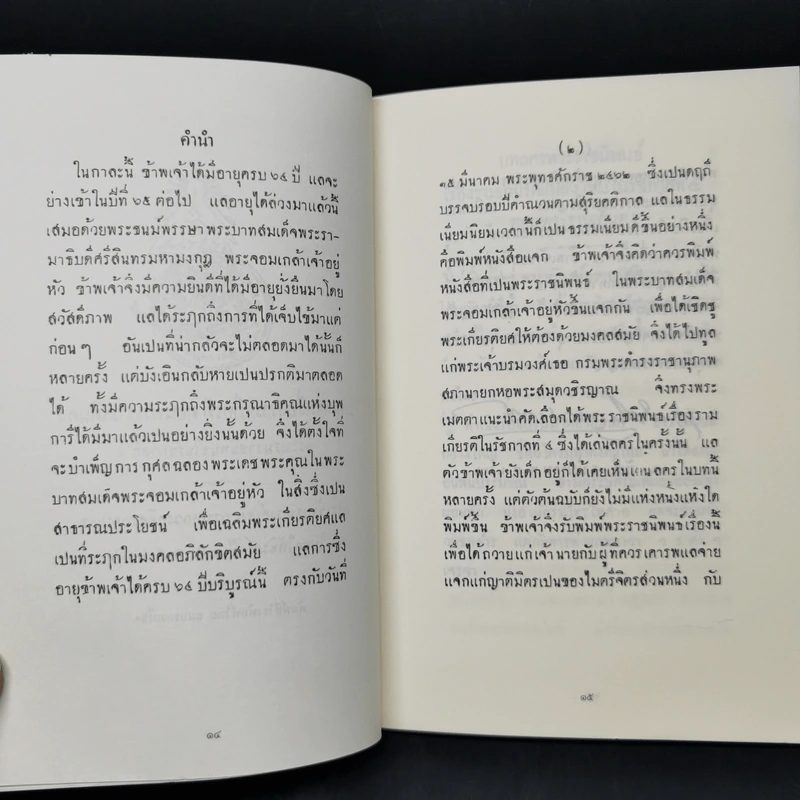 คำนำ
ในกาละนี้ ข้าพเจ้าได้มีอายุครบ ๖๔ ปี แลจะ
ย่างเข้าในปีที่ ๖๕ ต่อไป แลอายุได้ล่วงมาแล้วนี้
เสมอด้วยพระชนม์พรรษา พระบาทสมเด็จพระรา-
มาธิบดีศรีสินทรมหามงกุฎ พระจอมเกล้าเจ้าอยู่
หัว ข้าพเจ้าจึ่งมีความยินดีที่ได้มีอายุยั่งยืนมาโดย
สวัสดิภาพ แลได้ระฦกถึงการที่ได้เจ็บไข้มาแต่
ก่อนๆ อันเปนที่น่ากลัวจะไม่ตลอดมาได้นั้นก็
หลายครั้ง แต่บังเอินกลับหายเปนปรกติมาตลอด
ได้ ทั้งมีความระฦกถึงพระกรุณาธิคุณแห่งบุพ
การีได้มีมาแล้วเปนอย่างยิ่งนั้นด้วย จึ่งได้ตั้งใจที่
จะบำเพ็ญการกุศลฉลองพระเดชพระคุณในพระ
บาทสมเด็จพระจอมเกล้าเจ้าอยู่หัว ในสิ่งซึ่งเปน
สาธารณประโยชน์ เพื่อเฉลิมพระเกียรติยศแล
เปนที่ระฦกในมงคลอภิลักขิตสมัย แลการซึ่ง
อายุข้าพเจ้าได้ครบ ๖๔ ปีบริบูรณ์นี้ ตรงกับวันที่
๑๔
(๒)
๑๕ มีนาคม พระพุทธศักราช ๒๔๖๒ ซึ่งเปนดฤถี
บรรจบรอบปีคำณวนตามสุริยคติกาล แลในธรรม
เนียมนิยมเวลานี้ก็เปนธรรมเนียมดีขึ้นอย่างหนึ่ง
คือพิมพ์หนังสือแจก ข้าพเจ้าจึ่งคิดว่าควรพิมพ์
หนังสือที่เปนพระราชนิพนธ์ ในพระบาทสมเด็จ
พระจอมเกล้าเจ้าอยู่หัวขึ้นแจกกัน เพื่อได้เชิดชู
พระเกียรติยศให้ต้องด้วยมงคลสมัย จึ่งได้ไปทูล
แก่พระเจ้าบรมวงศ์เธอ กรมพระดำรงราชานุภาพ
สภานายกหอพระสมุดวชิรญาณ จึ่งทรงพระ
เมตตาแนะนำคัดเลือกได้พระราชนิพนธ์เรื่องราม
เกียรติในรัชกาลที่ ๔ ซึ่งได้เล่นลครในครั้งนั้น แล
ตัวข้าพเจ้ายังเด็กอยู่ก็ได้เคยเห็นเล่นลครในบทนี้
หลายครั้ง แต่ตัวต้นฉบับก็ยังไม่มีแห่งหนึ่งแห่งใด
พิมพ์ขึ้น ข้าพเจ้าจึ่งรับพิมพ์พระราชนิพนธ์เรื่องนี้
เพื่อได้ถวายแก่เจ้านายกับผู้ที่ควรเคารพแลจ่าย
แจกแก่ญาติมิตรเปนของไมตรีจิตรส่วนหนึ่ง กับ
๑๕